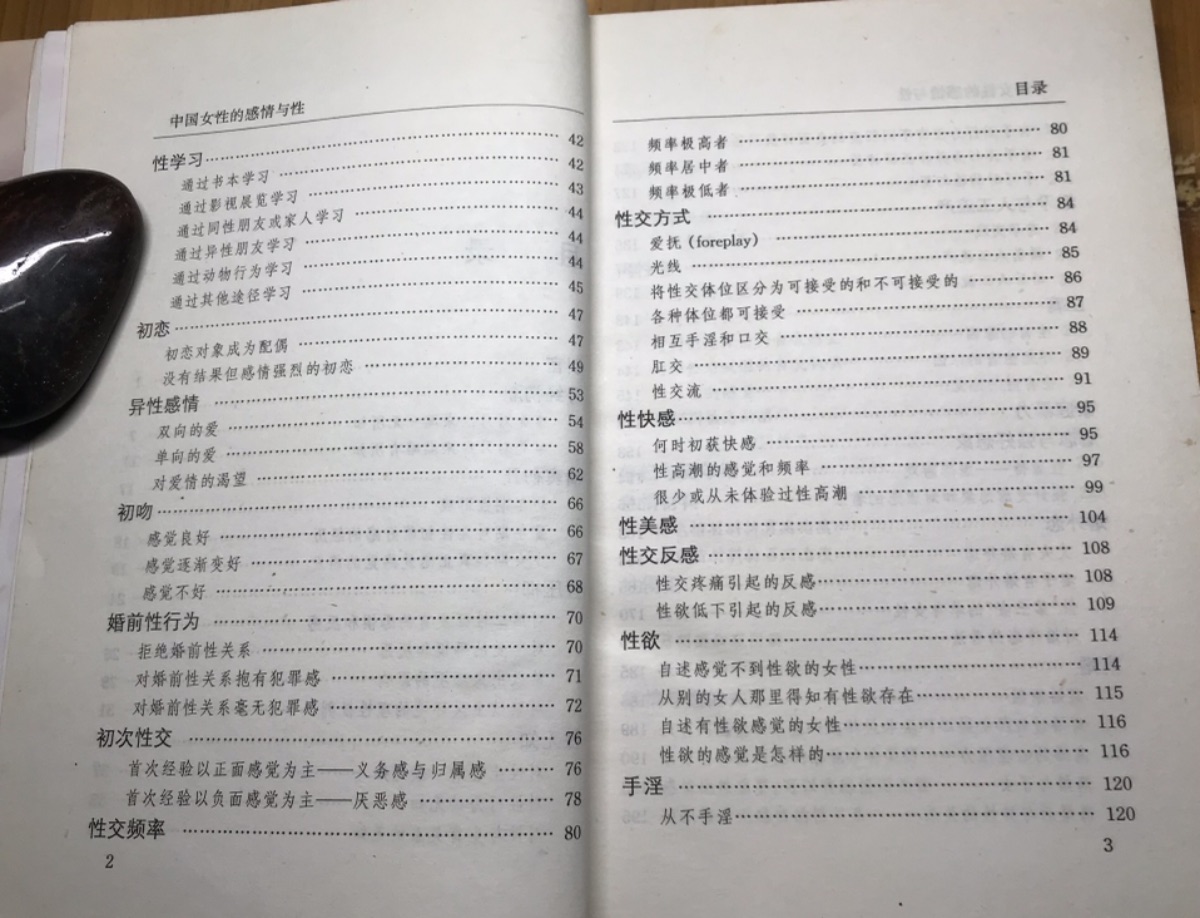 中国女性的感情与性
性学习…………………………………………………… 42
通过书本学习 …………………………………………… 42
通过影视展览学习 ……………………………………… 43
通过同性朋友或家人学习 ……………………………… 44
通过异性朋友学习 ……………………………………… 44
通过动物行为学习 ……………………………………… 44
通过其他途径学习 ……………………………………… 45
初恋……………………………………………………… 47
初恋对象成为配偶 ……………………………………… 47
没有结果但感情强烈的初恋 …………………………… 49
异性感情 ………………………………………………… 53
双向的爱 ………………………………………………… 54
单向的爱 ………………………………………………… 58
对爱情的渴望 …………………………………………… 62
初吻……………………………………………………… 66
感觉良好 ………………………………………………… 66
感觉逐渐变好 …………………………………………… 67
感觉不好 ………………………………………………… 68
婚前性行为 ……………………………………………… 70
拒绝婚前性关系 ………………………………………… 70
对婚前性关系抱有犯罪感 ……………………………… 71
对婚前性关系毫无犯罪感 ……………………………… 72
初次性交 ………………………………………………… 76
首次经验以正面感觉为主——义务感与归属感 ……… 76
首次经验以负面感觉为主——厌恶感 ……………… 78
性交频率 ………………………………………………… 80
2
目录
频率极高者 ……………………………………………… 80
频率居中者 ……………………………………………… 81
频率极低者 ……………………………………………… 81
性交方式 ………………………………………………… 84
爱抚（foreplay） ………………………………………… 84
光线 ……………………………………………………… 85
将性交体位区分为可接受的和不可接受的 …………… 86
各种体位都可接受 ……………………………………… 87
相互手淫和口交 ………………………………………… 88
肛交 ……………………………………………………… 89
性交流 …………………………………………………… 91
性快感…………………………………………………… 95
何时初获快感 …………………………………………… 95
性高潮的感觉和频率 …………………………………… 97
很少或从未体验过性高潮 ……………………………… 99
性美感 …………………………………………………… 104
性交反感 ………………………………………………… 108
性交疼痛引起的反感…………………………………… 108
性欲低下引起的反感…………………………………… 109
性欲 ……………………………………………………… 114
自述感觉不到性欲的女性……………………………… 114
从别的女人那里得知有性欲存在……………………… 115
自述有性欲感觉的女性………………………………… 116
性欲的感觉是怎样的…………………………………… 116
手淫 ……………………………………………………… 120
从不手淫………………………………………………… 120
3